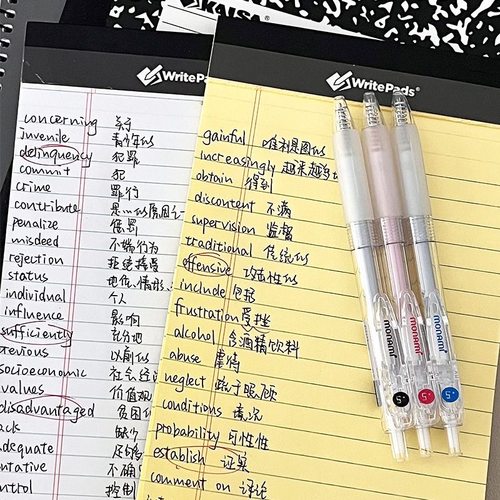 WritePads
concerning 关于
juvenile 青少年的
delinquency 犯罪
commit 犯
crime 罪行
contribute 是...的原因之一
penalize 惩罚
misdeed 不端行为
rejection 拒绝接受
status 地位、情形、
individual 个人
influence 影响
sufficiently 充分地
previous 以前的
socioeconomic 社会经
values 价值观
disadvantaged 贫困的
ack 缺少
adequate 足够的
ntative 不确
ntrol 控制
WritePads®
gainful 唯利是图的
increasingly 越来越多
obtain 得到
discontent 不满
supervision 监督
traditional 传统的
offensive 攻击性的
include 包括
frustration 受挫
alcohol 含酒精饮料
abuse 虐待
neglect 疏于照顾
conditions 情况
probability 可能性
establish 证实
comment on 评论
monami
monami
monami
.5
.5
.5